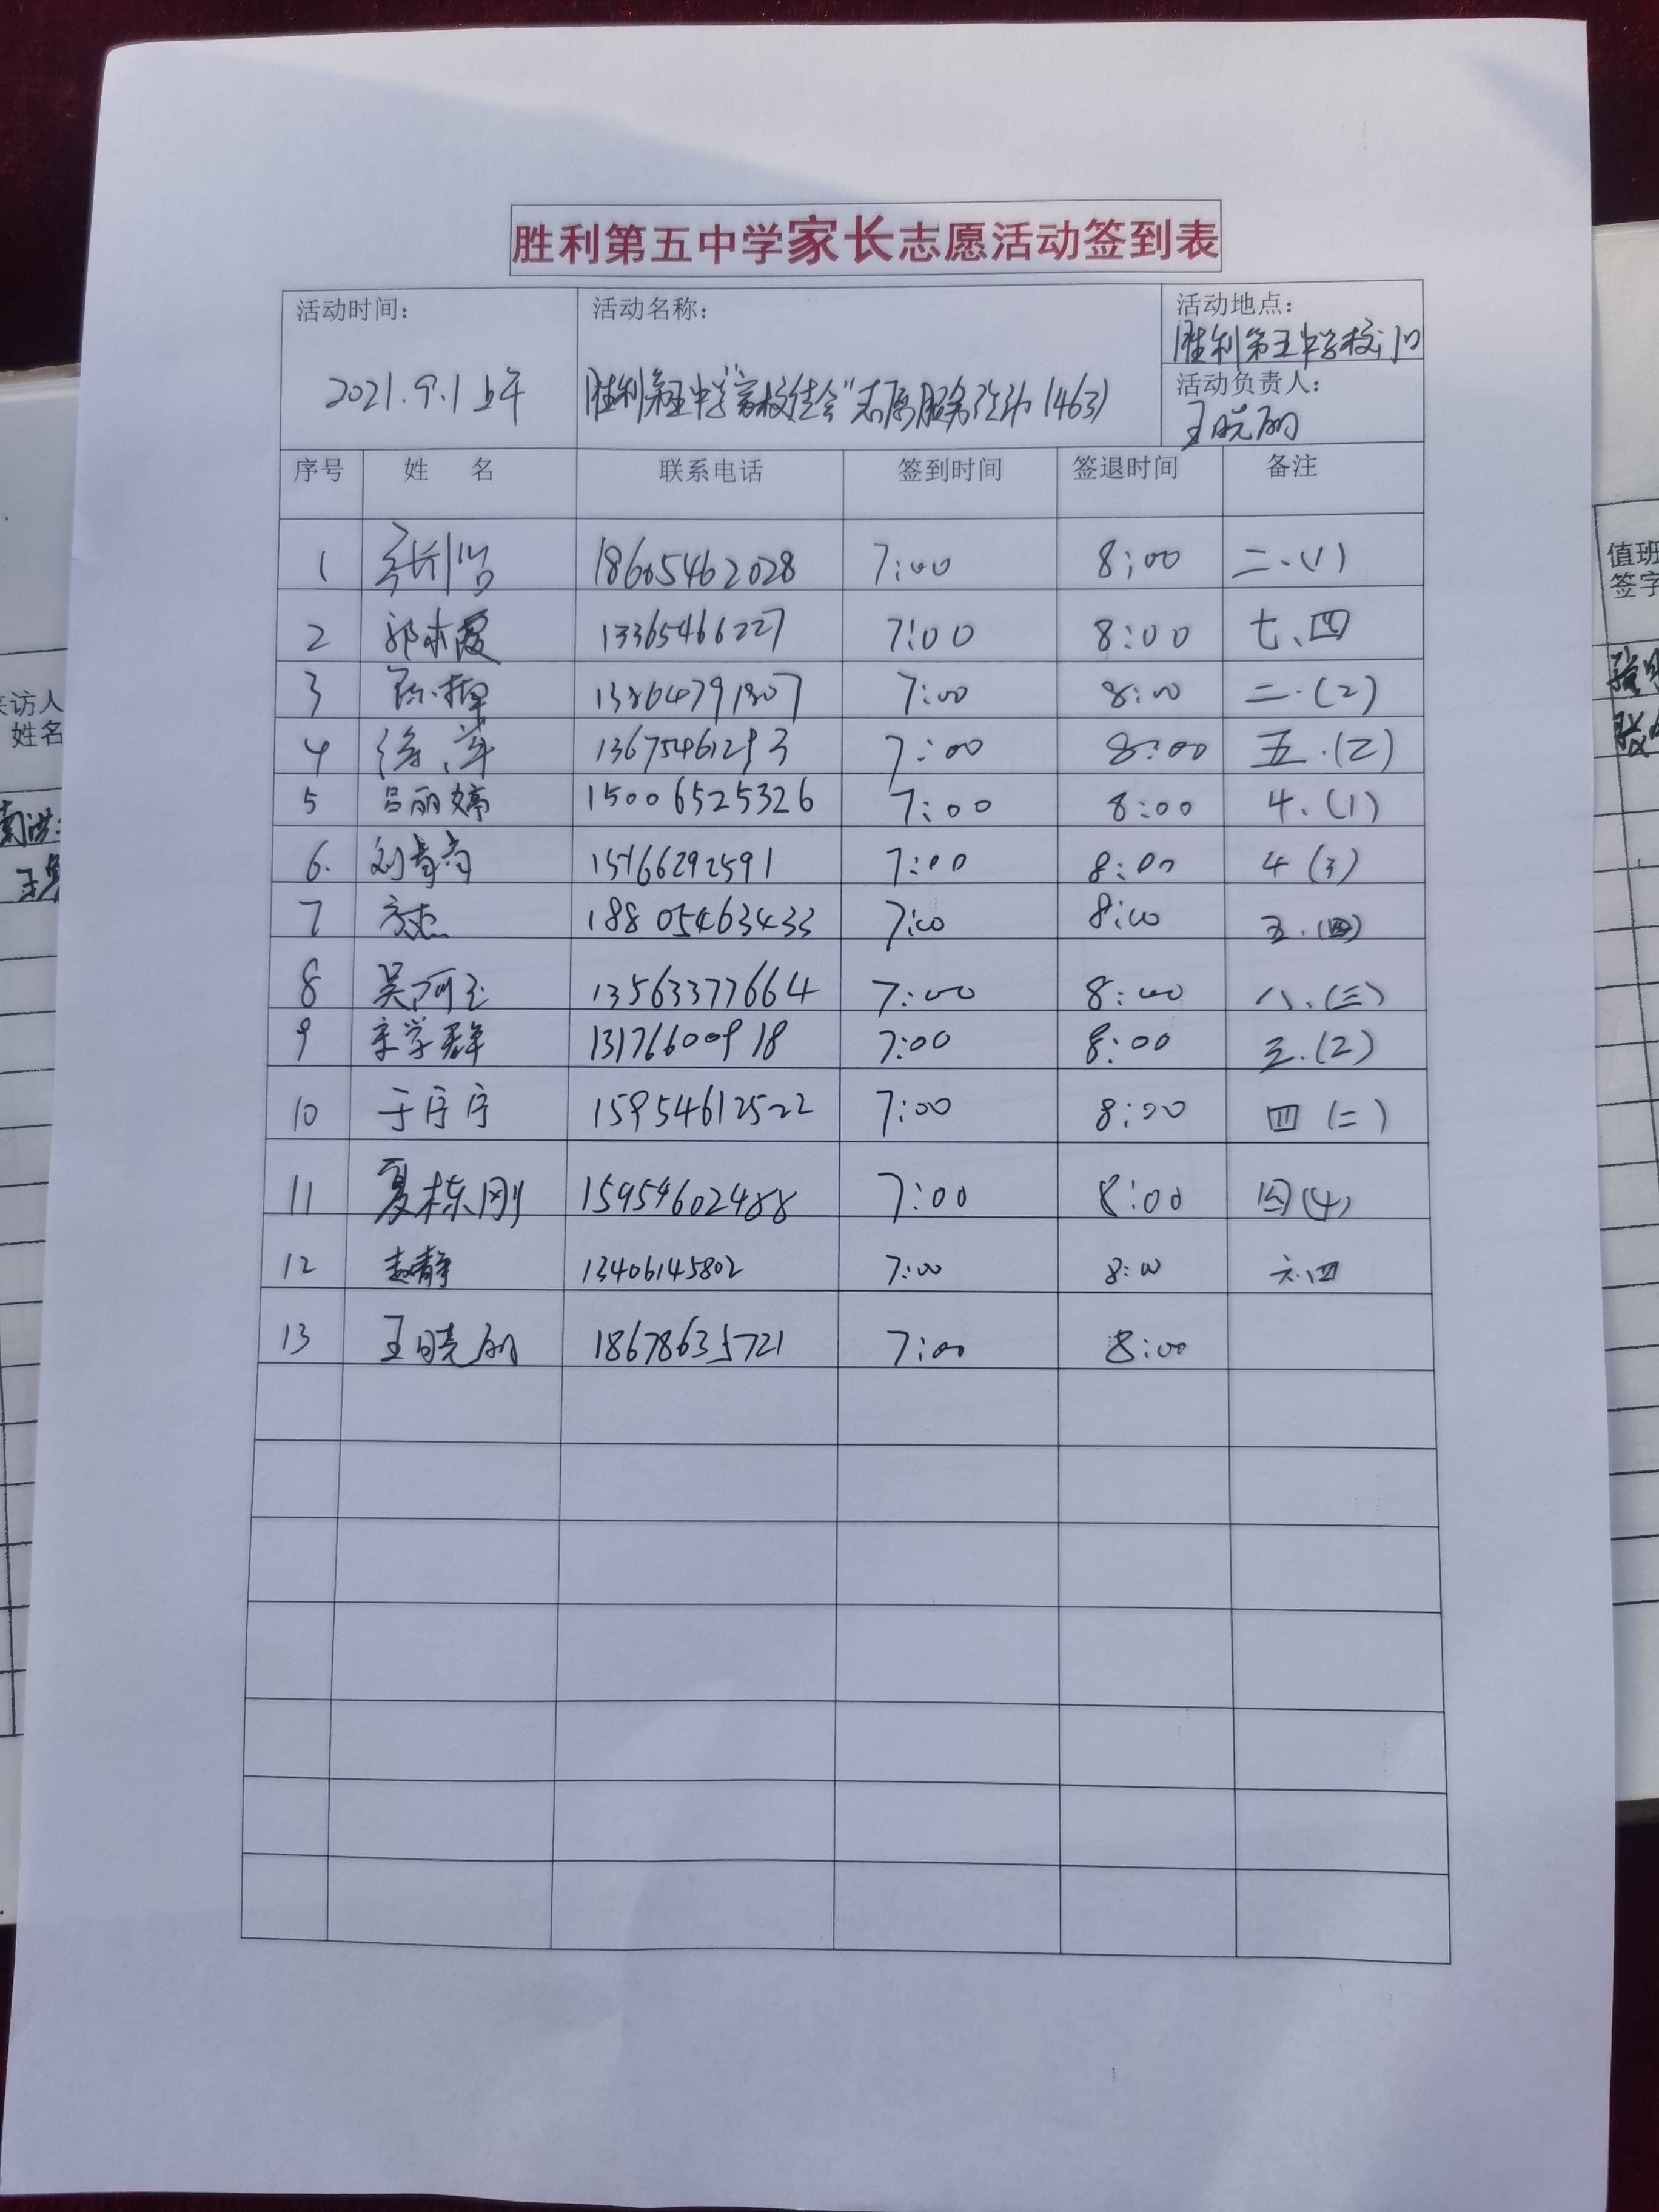 胜利第五中学家长志愿活动签到表
活动时间：
2021.9.1上午
活动名称：
胜利第五中学"家校佳会"志愿服务活动(463)
活动地点：
胜利第五中学校门口
活动负责人：
王晓丽
序号 姓 名 联系电话 签到时间 签退时间 备注
1 18605462028 7:00 8:00 二.(1)
2 13365466227 7:00 8:00 七、四
3 7:00 8:00 二.(2)
4 徐萍 13675461293 7:00 8:00 五.(2)
5 吕丽婷 15006525326 7:00 8:00 4.(1)
6. 7:00 8:00 4(3)
7 方杰 18805463433 7:00 8:00 五.(四)
8 吴阿玉 13563377664 7:00 8:00 八.(三)
9 宋学群 13176600918 7:00 8:00 三.(2)
10 于序序 15954612522 7:00 8:00 四(二)
11 夏栋刚 15954602488 7:00 8:00 四(4)
12 赵静 13406145802 7:00 8:00 六.四
13 王晓丽 18678635721 7:00 8:00
来访人
姓名
值班
签字